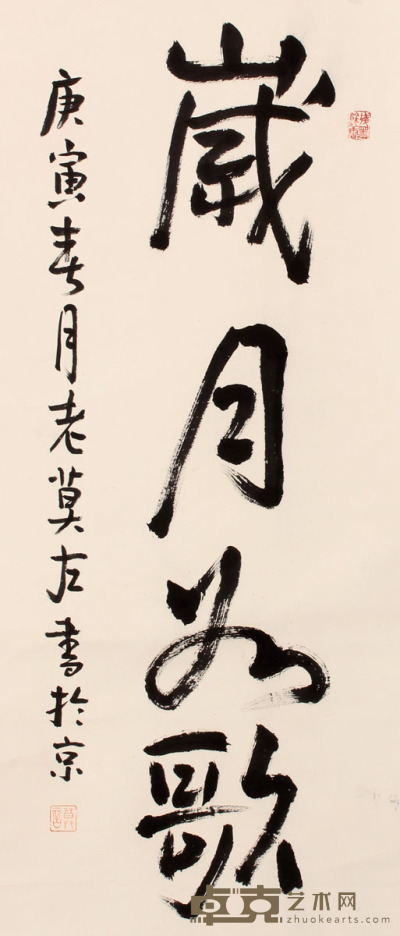 歲月如歌
庚寅春月老莫左書於京
卓克艺术网
zhuokearts.com